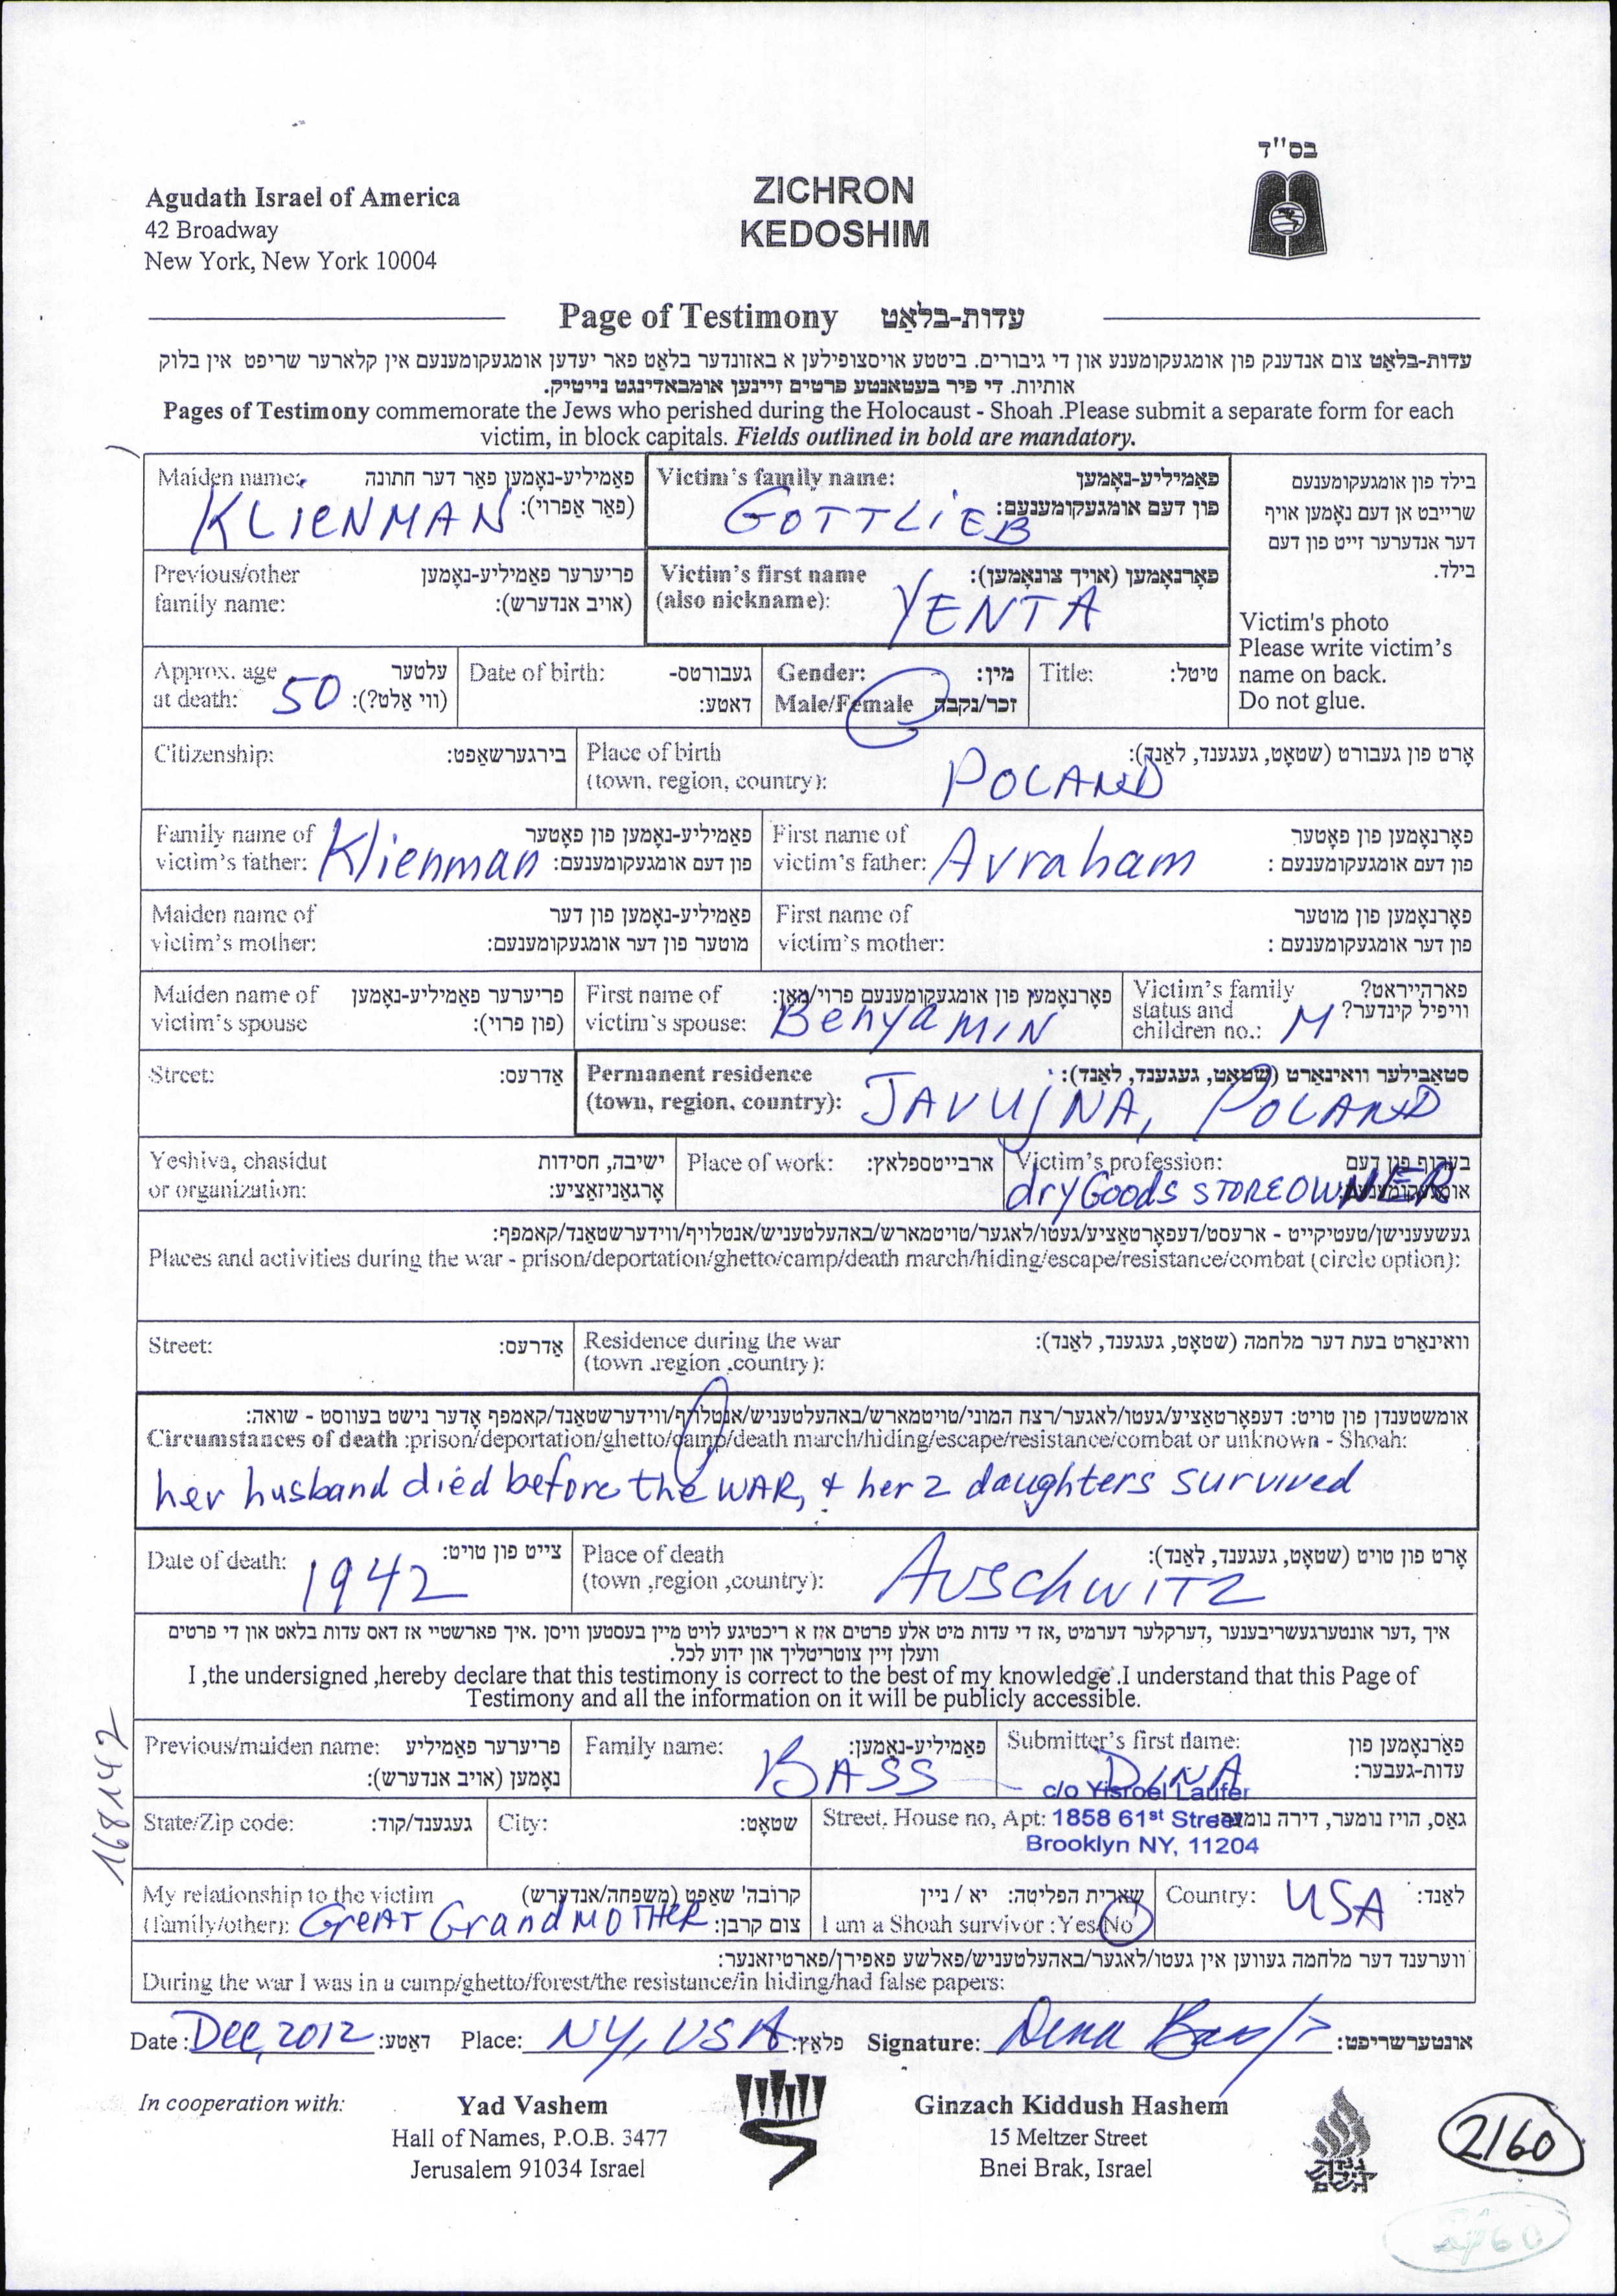 בס"ד
Agudath Israel of America
42 Broadway
New York, New York 10004
ZICHRON
KEDOSHIM
Page of Testimony עדות-בלאַט
עדות-בלאַט צום אנדענק פון אומגעקומענע און די גיבורים. ביטע אויסצופילען א באזונדער בלאַט פאר יעדען אומגעקומענעם אין קלארער שריפט אין בלוק
אותיות. די פיר בעטאנטע פרטים זיינען אומבאדינגט נייטיק.
Pages of Testimony commemorate the Jews who perished during the Holocaust - Shoah .Please submit a separate form for each
victim, in block capitals. Fields outlined in bold are mandatory.
Maiden name: פאַמיליע-נאָמען פאַר דער חתונה
(פאַר אַפרוי):
KLIENMAN
Victim's family name: פאַמיליע-נאָמען
פון דעם אומגעקומענעם:
GOTTLIEB
בילד פון אומגעקומענעם
שרייבט אן דעם נאָמען אויף
דער אנדערער זייט פון דעם
בילד.
Victim's photo
Please write victim's
name on back.
Do not glue.
Previous/other פריערער פאַמיליע-נאָמען
family name: (אויב אנדערש):
Victim's first name פאָרנאָמען (אויך צונאָמען):
(also nickname): YENTA
Approx. age עלטער
at death: 50 (ווי אַלט?):
Date of birth: געבורטס-
דאטע:
Gender: מין:
Male/Female זכר/נקבה
Title: טיטל:
Citizenship: בירגערשאַפט:
Place of birth אָרט פון געבורט (שטאָט, געגענד, לאַנד):
(town, region, country): POLAND
Family name of פאַמיליע-נאָמען פון פאָטער
victim's father: Klienman פון דעם אומגעקומענעם:
First name of פאָרנאָמען פון פאָטער
victim's father: Avraham פון דעם אומגעקומענעם :
Maiden name of פאַמיליע-נאָמען פון דער
victim's mother: מוטער פון דער אומגעקומענעם:
First name of פאָרנאָמען פון מוטער
victim's mother: פון דער אומגעקומענעם :
Maiden name of פריערער פאַמיליע-נאָמען
victim's spouse (פון פרוי):
First name of פאָרנאָמען פון אומגעקומענעם פרוי/מאַן:
victim's spouse: BenyaMIN
Victim's family פארהייראט?
status and וויפיל קינדער?
children no.: M
Street: אַדרעס:
Permanent residence סטאַבילער וואוינאָרט (שטאָט, געגענד, לאַנד):
(town, region, country): JAVUjNA, POLAND
Yeshiva, chasidut ישיבה, חסידות
or organization: אָרגאַניזאַציע:
Place of work: ארבייטספלאץ:
Victim's profession: בערוף פון דעם
אומגעקומענעם:
dryGoods STOREOWNER
געשעענישן/טעטיקייט - ארעסט/דעפאָרטאַציע/געטו/לאגער/טויטמארש/באהעלטעניש/אנטלויף/ווידערשטאַנד/קאמפף:
Places and activities during the war - prison/deportation/ghetto/camp/death march/hiding/escape/resistance/combat (circle option):
Street: אַדרעס:
Residence during the war וואוינאָרט בעת דער מלחמה (שטאָט, געגענד, לאַנד):
(town .region .country):
אומשטענדן פון טויט: דעפאָרטאַציע/געטו/לאגער/רצח המוני/טויטמארש/באהעלטעניש/אנטלויף/ווידערשטאַנד/קאמפף אָדער נישט בעוואוסט - שואה:
Circumstances of death :prison/deportation/ghetto/camp/death march/hiding/escape/resistance/combat or unknown - Shoah:
her husband died before the WAR, + her 2 daughters survived
Date of death: 1942 צייט פון טויט:
Place of death אָרט פון טויט (שטאָט, געגענד, לאַנד):
(town ,region ,country): AUSCHWITZ
איך ,דער אונטערגעשריבענער ,דערקלער דערמיט ,אז די עדות מיט אלע פרטים איז א ריכטיגע לויט מיין בעסטען וויסן .איך פארשטיי אז דאס עדות בלאט און די פרטים
וועלן זיין צוטריטליך און ידוע לכל.
I ,the undersigned ,hereby declare that this testimony is correct to the best of my knowledge .I understand that this Page of
Testimony and all the information on it will be publicly accessible.
168142
Previous/maiden name: פריערער פאַמיליע
נאָמען (אויב אנדערש):
Family name: פאַמיליע-נאָמען:
BASS
Submitter's first name: פאָרנאָמען פון
עדות-געבער:
DINA
c/o Yisroel Laufer
State/Zip code: געגענד/קוד:
City: שטאָט:
Street, House no, Apt: 1858 61st Street גאַס, הויז נומער, דירה נומער:
Brooklyn NY, 11204
My relationship to the victim קרובה' שאַפט (משפחה/אנדערש)
(family/other): Great GrandMOTHER צום קרבן:
שארית הפליטה: יא / ניין
I am a Shoah survivor : Yes/No
Country: USA לאַנד:
ווערענד דער מלחמה געווען אין געטו/לאגער/באהעלטעניש/פאלשע פאפירן/פארטיזאנער:
During the war I was in a camp/ghetto/forest/the resistance/in hiding/had false papers:
Date : Dec, 2012 דאַטע: Place: NY, USA פלאַץ: Signature: Dina Bass אונטערשריפט:
In cooperation with:
Yad Vashem
Hall of Names, P.O.B. 3477
Jerusalem 91034 Israel
Ginzach Kiddush Hashem
15 Meltzer Street
Bnei Brak, Israel
2160
2760